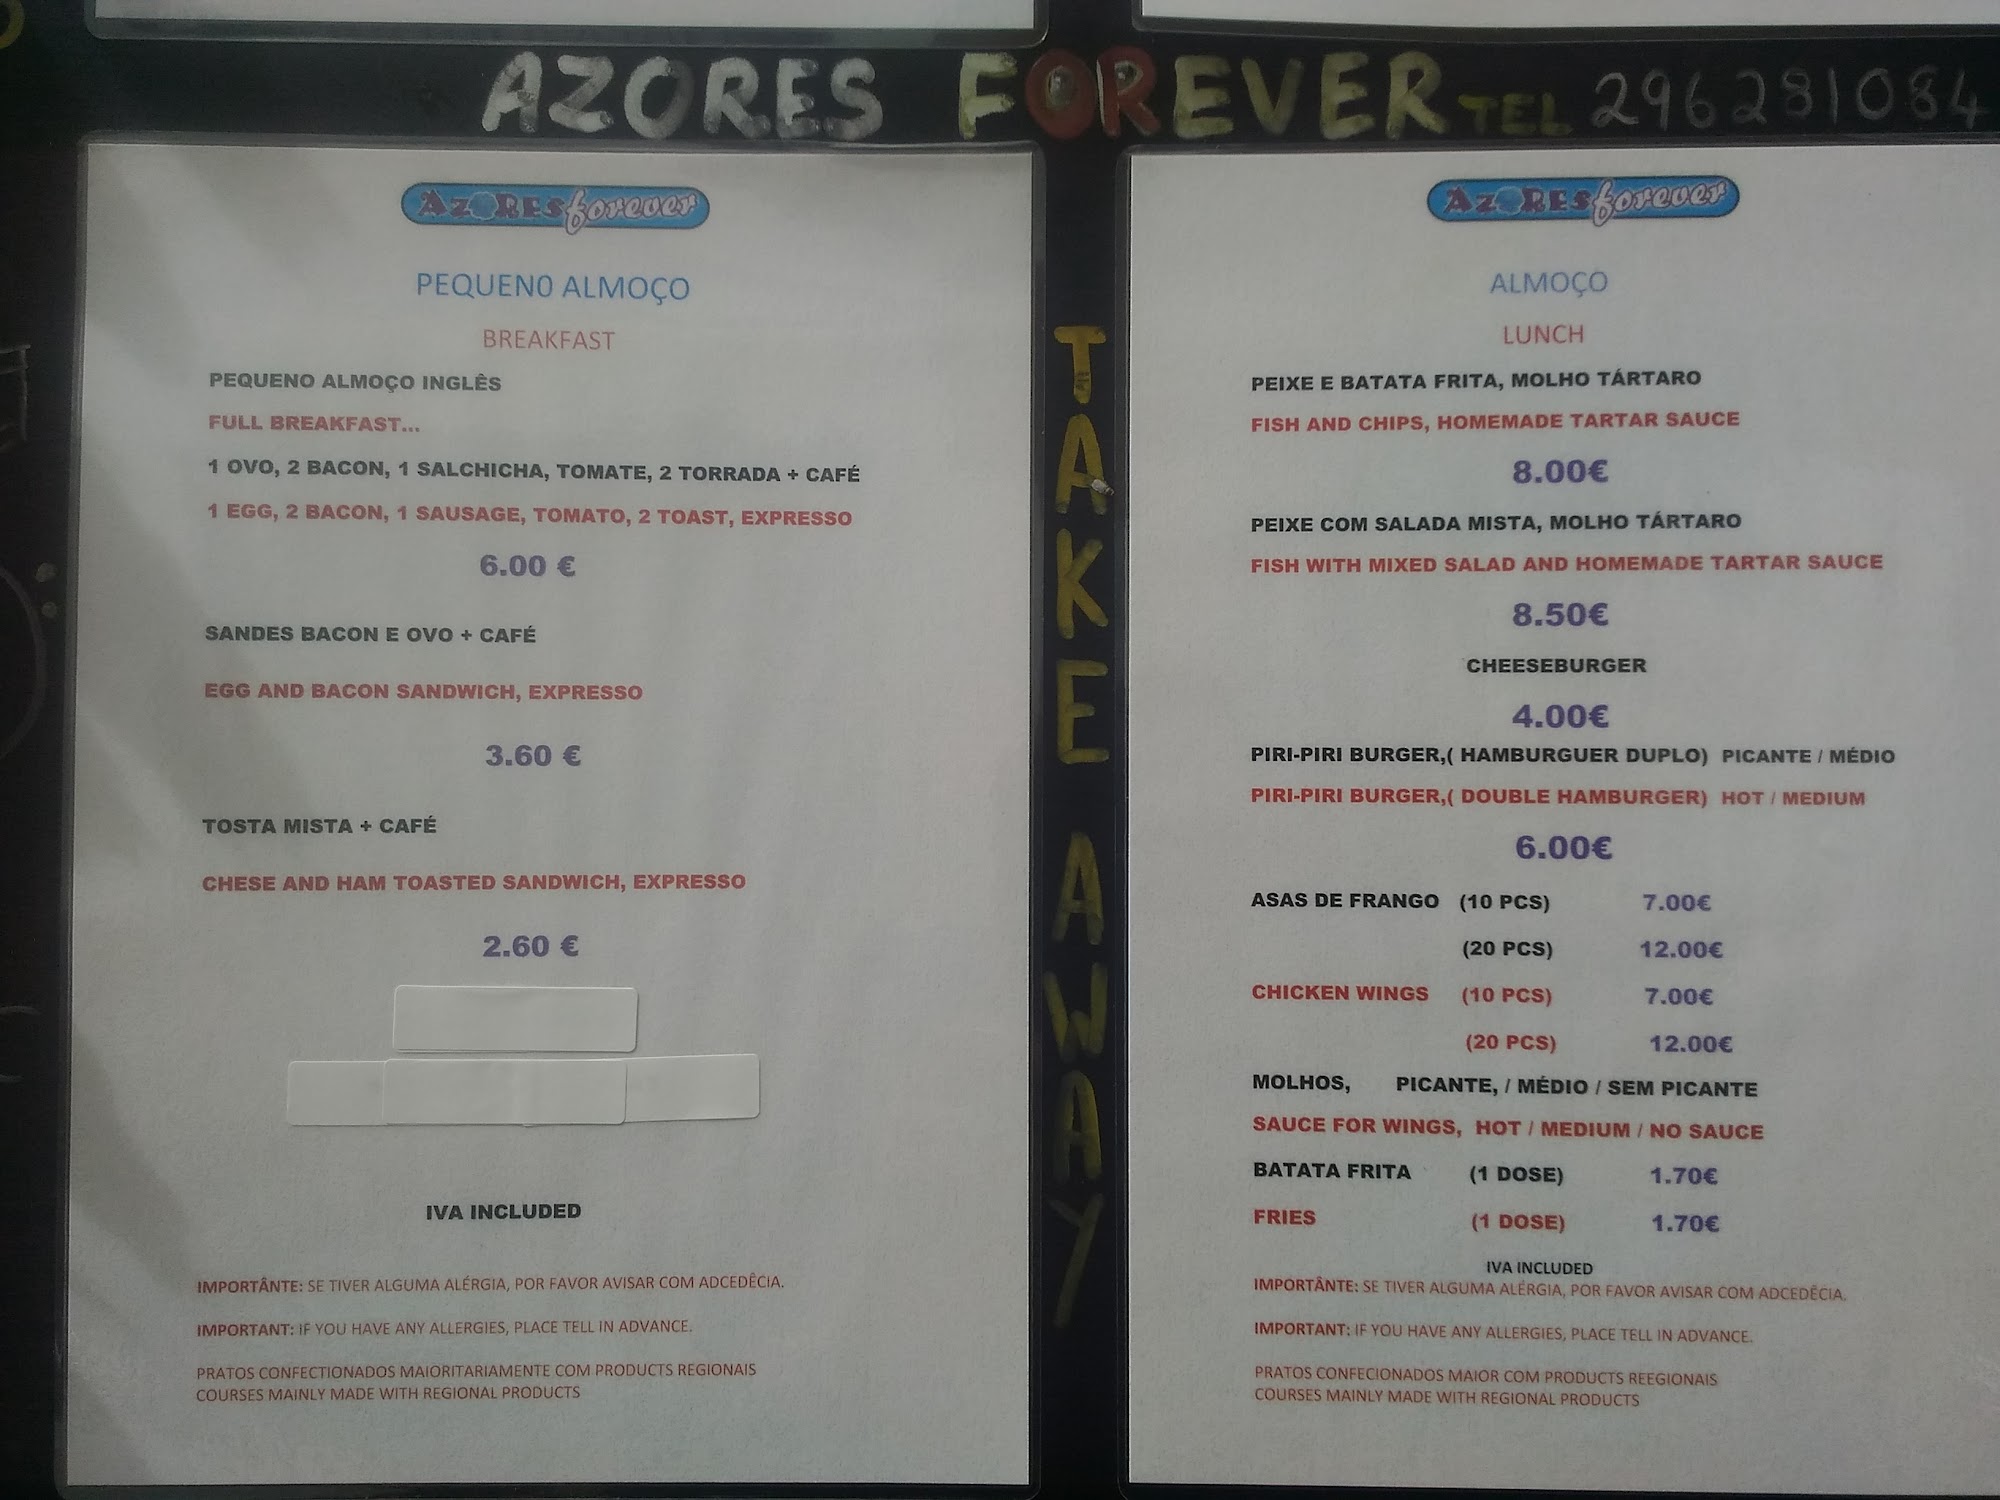 AZORES FOREVER TEL 296281084
AZORES forever
PEQUEN0 ALMOÇO
BREAKFAST
PEQUENO ALMOÇO INGLÊS
FULL BREAKFAST...
1 OVO, 2 BACON, 1 SALCHICHA, TOMATE, 2 TORRADA + CAFÉ
1 EGG, 2 BACON, 1 SAUSAGE, TOMATO, 2 TOAST, EXPRESSO
6.00 €
SANDES BACON E OVO + CAFÉ
EGG AND BACON SANDWICH, EXPRESSO
3.60 €
TOSTA MISTA + CAFÉ
CHESE AND HAM TOASTED SANDWICH, EXPRESSO
2.60 €
IVA INCLUDED
IMPORTÂNTE: SE TIVER ALGUMA ALÉRGIA, POR FAVOR AVISAR COM ADCEDÊCIA.
IMPORTANT: IF YOU HAVE ANY ALLERGIES, PLACE TELL IN ADVANCE.
PRATOS CONFECTIONADOS MAIORITARIAMENTE COM PRODUCTS REGIONAIS
COURSES MAINLY MADE WITH REGIONAL PRODUCTS
TAKE AWAY
AZORES forever
ALMOÇO
LUNCH
PEIXE E BATATA FRITA, MOLHO TÁRTARO
FISH AND CHIPS, HOMEMADE TARTAR SAUCE
8.00€
PEIXE COM SALADA MISTA, MOLHO TÁRTARO
FISH WITH MIXED SALAD AND HOMEMADE TARTAR SAUCE
8.50€
CHEESEBURGER
4.00€
PIRI-PIRI BURGER,( HAMBURGUER DUPLO) PICANTE / MÉDIO
PIRI-PIRI BURGER,( DOUBLE HAMBURGER) HOT / MEDIUM
6.00€
ASAS DE FRANGO (10 PCS) 7.00€
(20 PCS) 12.00€
CHICKEN WINGS (10 PCS) 7.00€
(20 PCS) 12.00€
MOLHOS, PICANTE, / MÉDIO / SEM PICANTE
SAUCE FOR WINGS, HOT / MEDIUM / NO SAUCE
BATATA FRITA (1 DOSE) 1.70€
FRIES (1 DOSE) 1.70€
IVA INCLUDED
IMPORTÂNTE: SE TIVER ALGUMA ALÉRGIA, POR FAVOR AVISAR COM ADCEDÊCIA.
IMPORTANT: IF YOU HAVE ANY ALLERGIES, PLACE TELL IN ADVANCE.
PRATOS CONFECIONADOS MAIOR COM PRODUCTS REEGIONAIS
COURSES MAINLY MADE WITH REGIONAL PRODUCTS